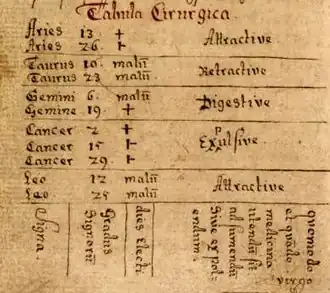 Tabula Cirurgica.
Aries 13 + Attractive
Aries 26 +
Taurus 10 malũ Retractive
Taurus 23 malũ
Gemini 6 malũ Digestive
Gemine 19 +
Cancer 2 + Expulsive
Cancer 15 +
Cancer 29 +
Leo 12 malũ Attractive
Leo 25 malũ
Signa
Gradus
Signorũ
dies Electi
Sive expel-
endum.
ad sumendũ
utendũ sit
medicina
et quãdo
quomodo
virgo